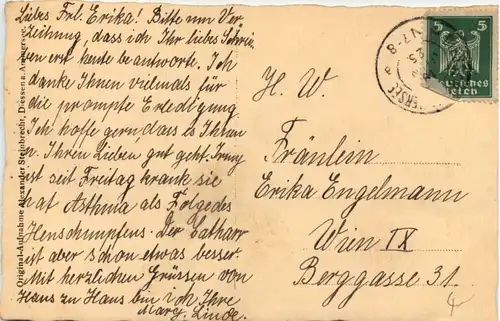 Liebes Frl. Erika! Bitte um Ver-
zeihung, dass ich Ihr liebes Schrei-
ben erst heute beantworte. Ich
danke Ihnen vielmals für
die prompte Erledigung.
Ich hoffe gern, dass es Ihnen
u. Ihren Lieben, gut geht. Irmy
ist seit Freitag krank sie
hat Asthma als Folge des
Heuschnupfens. Der Catharr
ist aber schon etwas besser.
Mit herzlichen Grüssen von
Haus zu Haus bin ich Ihre
Mary. Linde.
Original-Aufnahme Alexander Steinbrecht, Diessen a. Ammersee.
5 5
Deutsches
Reich
N 7-8
H. W.
Fräulein
Erika Engelmann
Wien IX
Berggasse 31.